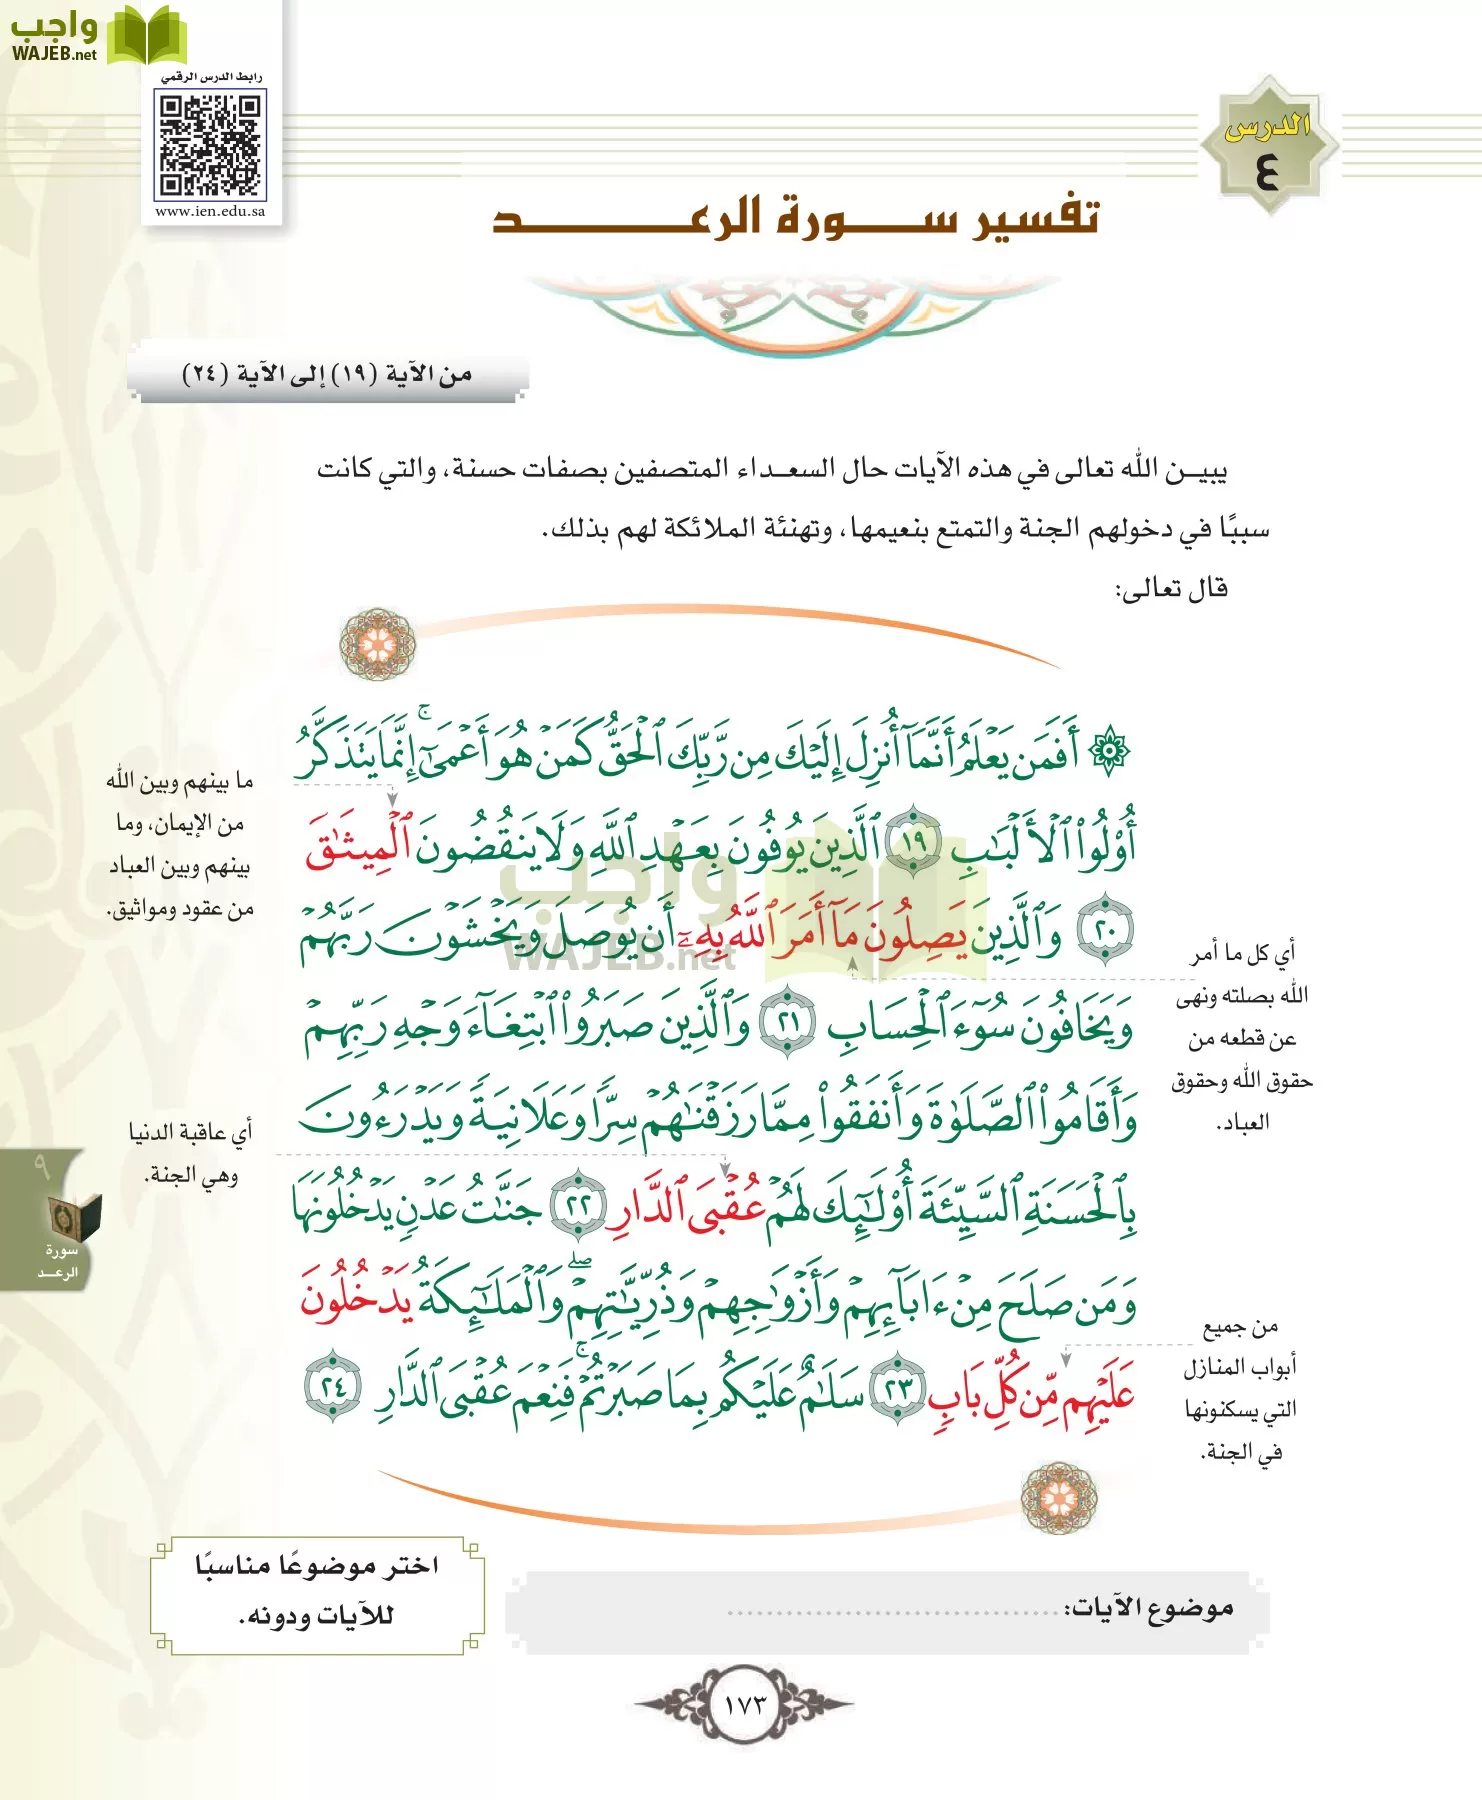 واجب
WAJEB.net
رابط الدرس الرقمي
www.ien.edu.sa
الدرس
٤
تفسير سورة الرعد
من الآية (١٩) إلى الآية (٢٤)
يبين الله تعالى في هذه الآيات حال السعداء المتصفين بصفات حسنة، والتي كانت
سببًا في دخولهم الجنة والتمتع بنعيمها، وتهنئة الملائكة لهم بذلك.
قال تعالى:
۞ أَفَمَن يَعْلَمُ أَنَّمَآ أُنزِلَ إِلَيْكَ مِن رَّبِّكَ ٱلْحَقُّ كَمَنْ هُوَ أَعْمَىٰٓ ۚ إِنَّمَا يَتَذَكَّرُ
أُو۟لُوا۟ ٱلْأَلْبَٰبِ ١٩ ٱلَّذِينَ يُوفُونَ بِعَهْدِ ٱللَّهِ وَلَا يَنقُضُونَ ٱلْمِيثَٰقَ
٢٠ وَٱلَّذِينَ يَصِلُونَ مَآ أَمَرَ ٱللَّهُ بِهِۦٓ أَن يُوصَلَ وَيَخْشَوْنَ رَبَّهُمْ
وَيَخَافُونَ سُوٓءَ ٱلْحِسَابِ ٢١ وَٱلَّذِينَ صَبَرُوا۟ ٱبْتِغَآءَ وَجْهِ رَبِّهِمْ
وَأَقَامُوا۟ ٱلصَّلَوٰةَ وَأَنفَقُوا۟ مِمَّا رَزَقْنَٰهُمْ سِرًّا وَعَلَانِيَةً وَيَدْرَءُونَ
بِٱلْحَسَنَةِ ٱلسَّيِّئَةَ أُو۟لَٰٓئِكَ لَهُمْ عُقْبَى ٱلدَّارِ ٢٢ جَنَّٰتُ عَدْنٍ يَدْخُلُونَهَا
وَمَن صَلَحَ مِنْ ءَابَآئِهِمْ وَأَزْوَٰجِهِمْ وَذُرِّيَّٰتِهِمْ ۖ وَٱلْمَلَٰٓئِكَةُ يَدْخُلُونَ
عَلَيْهِم مِّن كُلِّ بَابٍ ٢٣ سَلَٰمٌ عَلَيْكُم بِمَا صَبَرْتُمْ ۚ فَنِعْمَ عُقْبَى ٱلدَّارِ ٢٤
واجب
WAJEB.net
ما بينهم وبين الله
من الإيمان، وما
بينهم وبين العباد
من عقود ومواثيق.
أي كل ما أمر
الله بصلته ونهى
عن قطعه من
حقوق الله وحقوق
العباد.
أي عاقبة الدنيا
وهي الجنة.
من جميع
أبواب المنازل
التي يسكنونها
في الجنة.
٩
سورة
الرعد
موضوع الآيات: ..................................
اختر موضوعًا مناسبًا
للآيات ودونه.
١٧٣